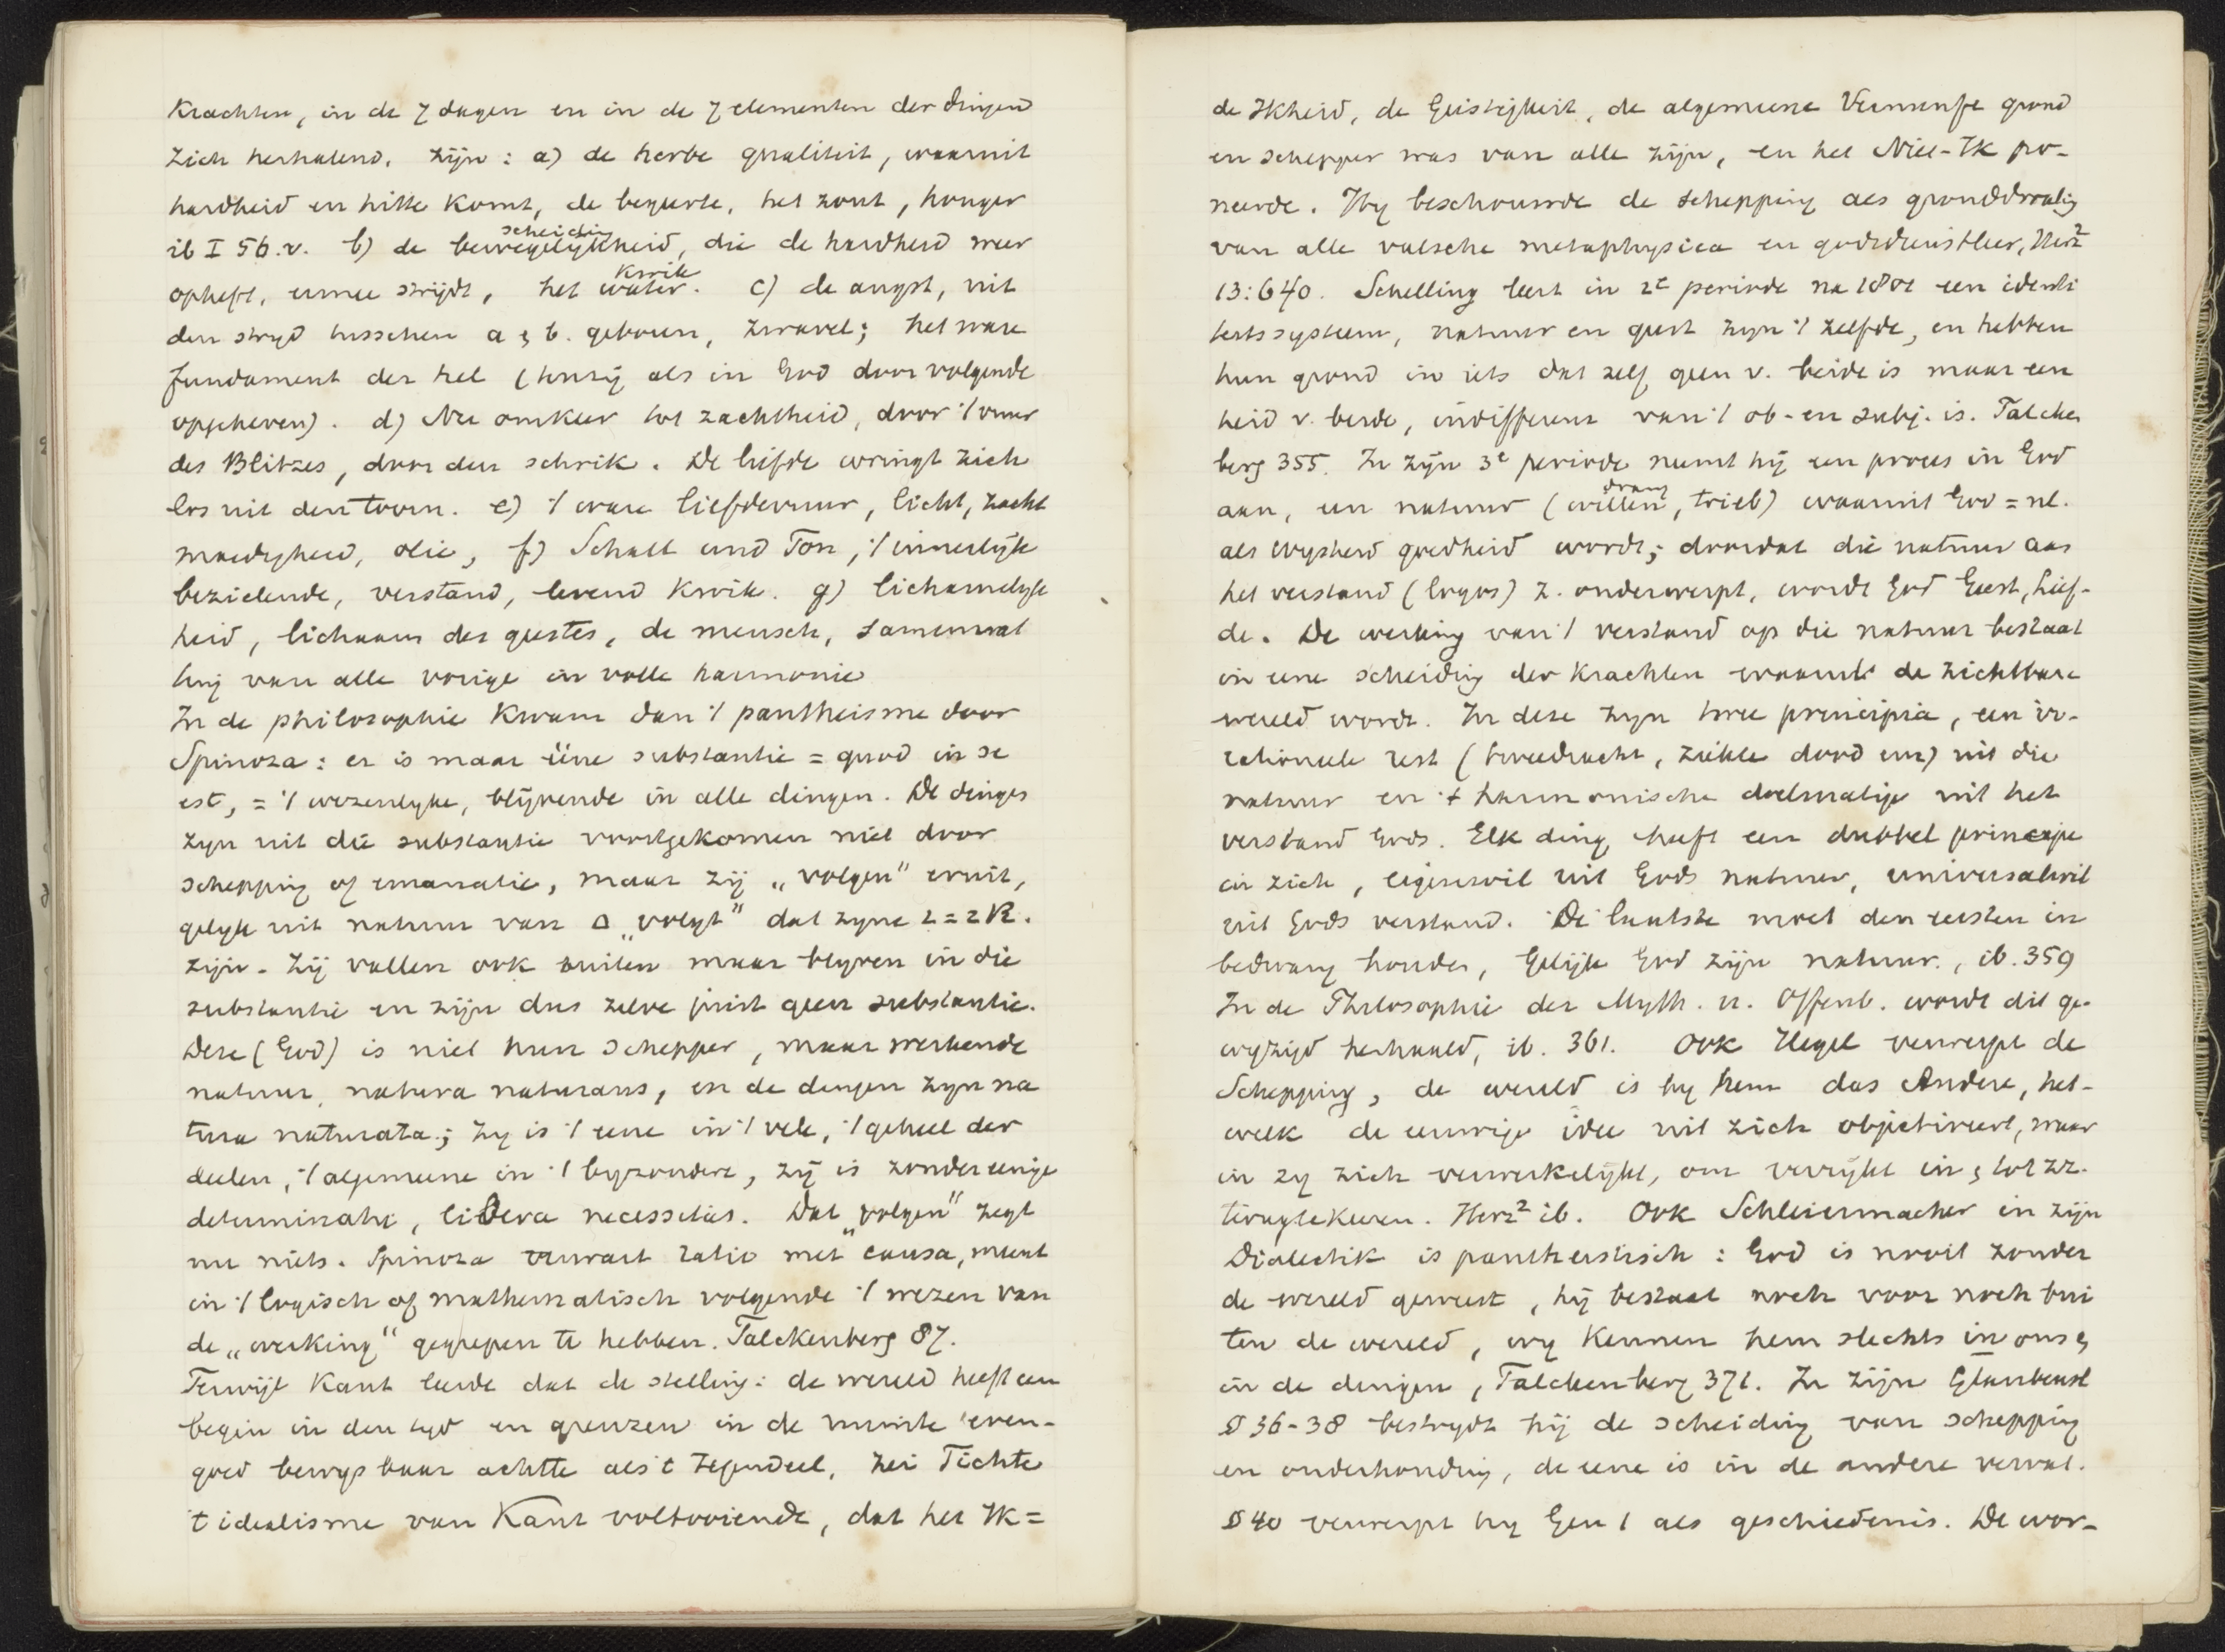 Krachten, in de 7 dagen en in de 7 elementen der dingen
zich herhalend, zijn: a) de herbe qualiteit, waaruit
hardheid en hitte komt, de begeerte, het zout, honger
ib I 56.v. b) de bewegelijkheid, scheiding die de hardheid weer
opheft, ermee strijdt, het water. kwik c) de angst, uit
den stryd tusschen a & b. geboren, zwavel; het ware
fundament der hel (tenzij als in God door volgende
opgeheven). d) Nu omkeer tot zachtheid, door 't vuur
des Blitzes, door den schrik. De liefde wringt zich
los uit den toorn. e) 't ware liefdevuur, licht, zacht
moedigheid, olie, f) Schall und Ton, 't innerlijk
bezielende, verstand, levend kwik. g) lichamelyk
heid, lichaam des geestes, de mensch, samenvat
ting van alle vorige in volle harmonie
In de philosophie kwam dan 't pantheisme door
Spinoza: er is maar ééne substantie = quod in se
est, = 't wezenlyke, blijvende in alle dingen. De dingen
zyn uit die substantie voortgekomen niet door
schepping of emanatie, maar zij „volgen" eruit,
gelyk uit natuur van Δ „volgt" dat zyne ∠ = 2 R.
zijn. Zij vallen ook buiten maar blyven in die
substantie en zijn dus zelve juist geen substantie.
Deze (God) is niet hun schepper, maar werkende
natuur, natura naturans, en de dingen zyn na
tura naturata; zy is 't eene in 't vele, 't geheel der
deelen, 't algemeene in 't byzondere, zij is zonder eenige
determinatie, libera necessitas. Dat „volgen" zegt
nu niets. Spinoza verwart ratio met causa, meent
in 't logisch of mathematisch volgende 't wezen van
de „werking" gegrepen te hebben. Falckenberg 87.
Terwijl Kant leerde dat de stelling: de wereld heeft een
begin in den tyd en grenzen in de ruimte even-
goed bewysbaar achtte als 't tegendeel, zei Fichte
't idealisme van Kant voltooiende, dat het Ik =
de Ikheid, de Geistigkeit, de algemeene Vernunft grond
en schepper was van alle zijn, en het Niet-Ik po-
neerde. Hy beschouwde de schepping als gronddwaling
van alle valsche metaphysica en godsdienstleer, Herz²
13:640. Schelling leert in 2e periode na 1801 een identi
teitssysteem, natuur en geest zyn 't zelfde, en hebben
hun grond in iets dat zelf geen v. beide is maar een
heid v. beide, indifferenz van 't ob- en subj. is. Falcken
berg 355. In zijn 3e periode neemt hij een proces in God
aan, een natuur (willen, drang trieb) waaruit God = nl.
als wysheid goedheid wordt; doordat die natuur aan
het verstand (logos) z. onderwerpt, wordt God Geest, Lief-
de. De werking van 't verstand op die natuur bestaat
in eene scheiding der Krachten waaruit de zichtbare
wereld wordt. In deze zyn twee principia, een ir-
rationeele rest (tweedracht, ziekte dood enz) uit die
natuur en 't harmonische doelmatige uit het
verstand Gods. Elk ding heeft een dubbel principe
in zich, eigenwil uit Gods natuur, universalwil
uit Gods verstand. De laatste moet den eersten in
bedwang houden, Gelijk God zijn natuur., ib. 359
In de Philosophie der Myth. u. Offenb. wordt dit ge-
wyzigd herhaald, ib. 361. Ook Hegel verwerpt de
Schepping, de wereld is by hem das Andere, het-
welk de eeuwige idee uit zich objectiveert, waar
in zy zich verwerkelijkt, om verrijkt in & tot zz.
terugtekeeren. Herz² ib. Ook Schleiermacher in zijn
Dialectik is pantheistisch: God is nooit zonder
de wereld geweest, hij bestaat noch voor noch bui
ten de wereld, wy kennen hem slechts in ons &
in de dingen, Falckenberg 371. In zijn Glaubensl
§ 36-38 bestrydt hij de scheiding van schepping
en onderhouding, de eene is in de andere vervat.
§ 40 verwerpt hy Gen 1 als geschiedenis. De wor-